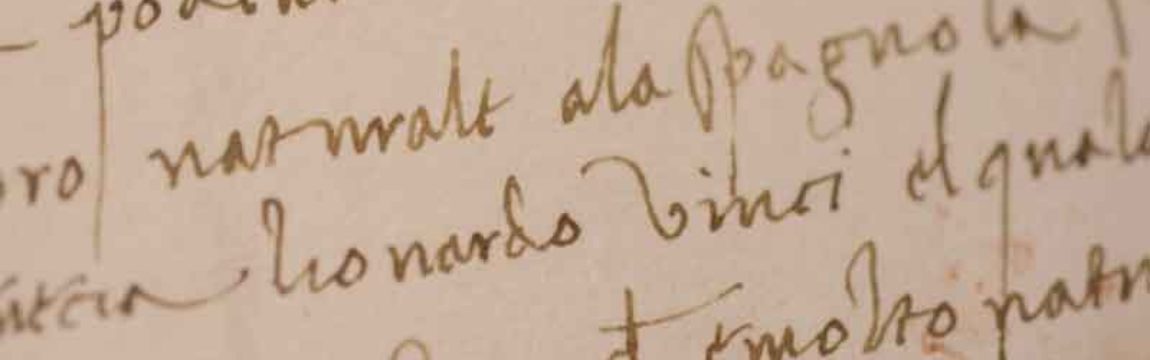 naturale ala spagnola
lionardo vinci el quale
e molto natu